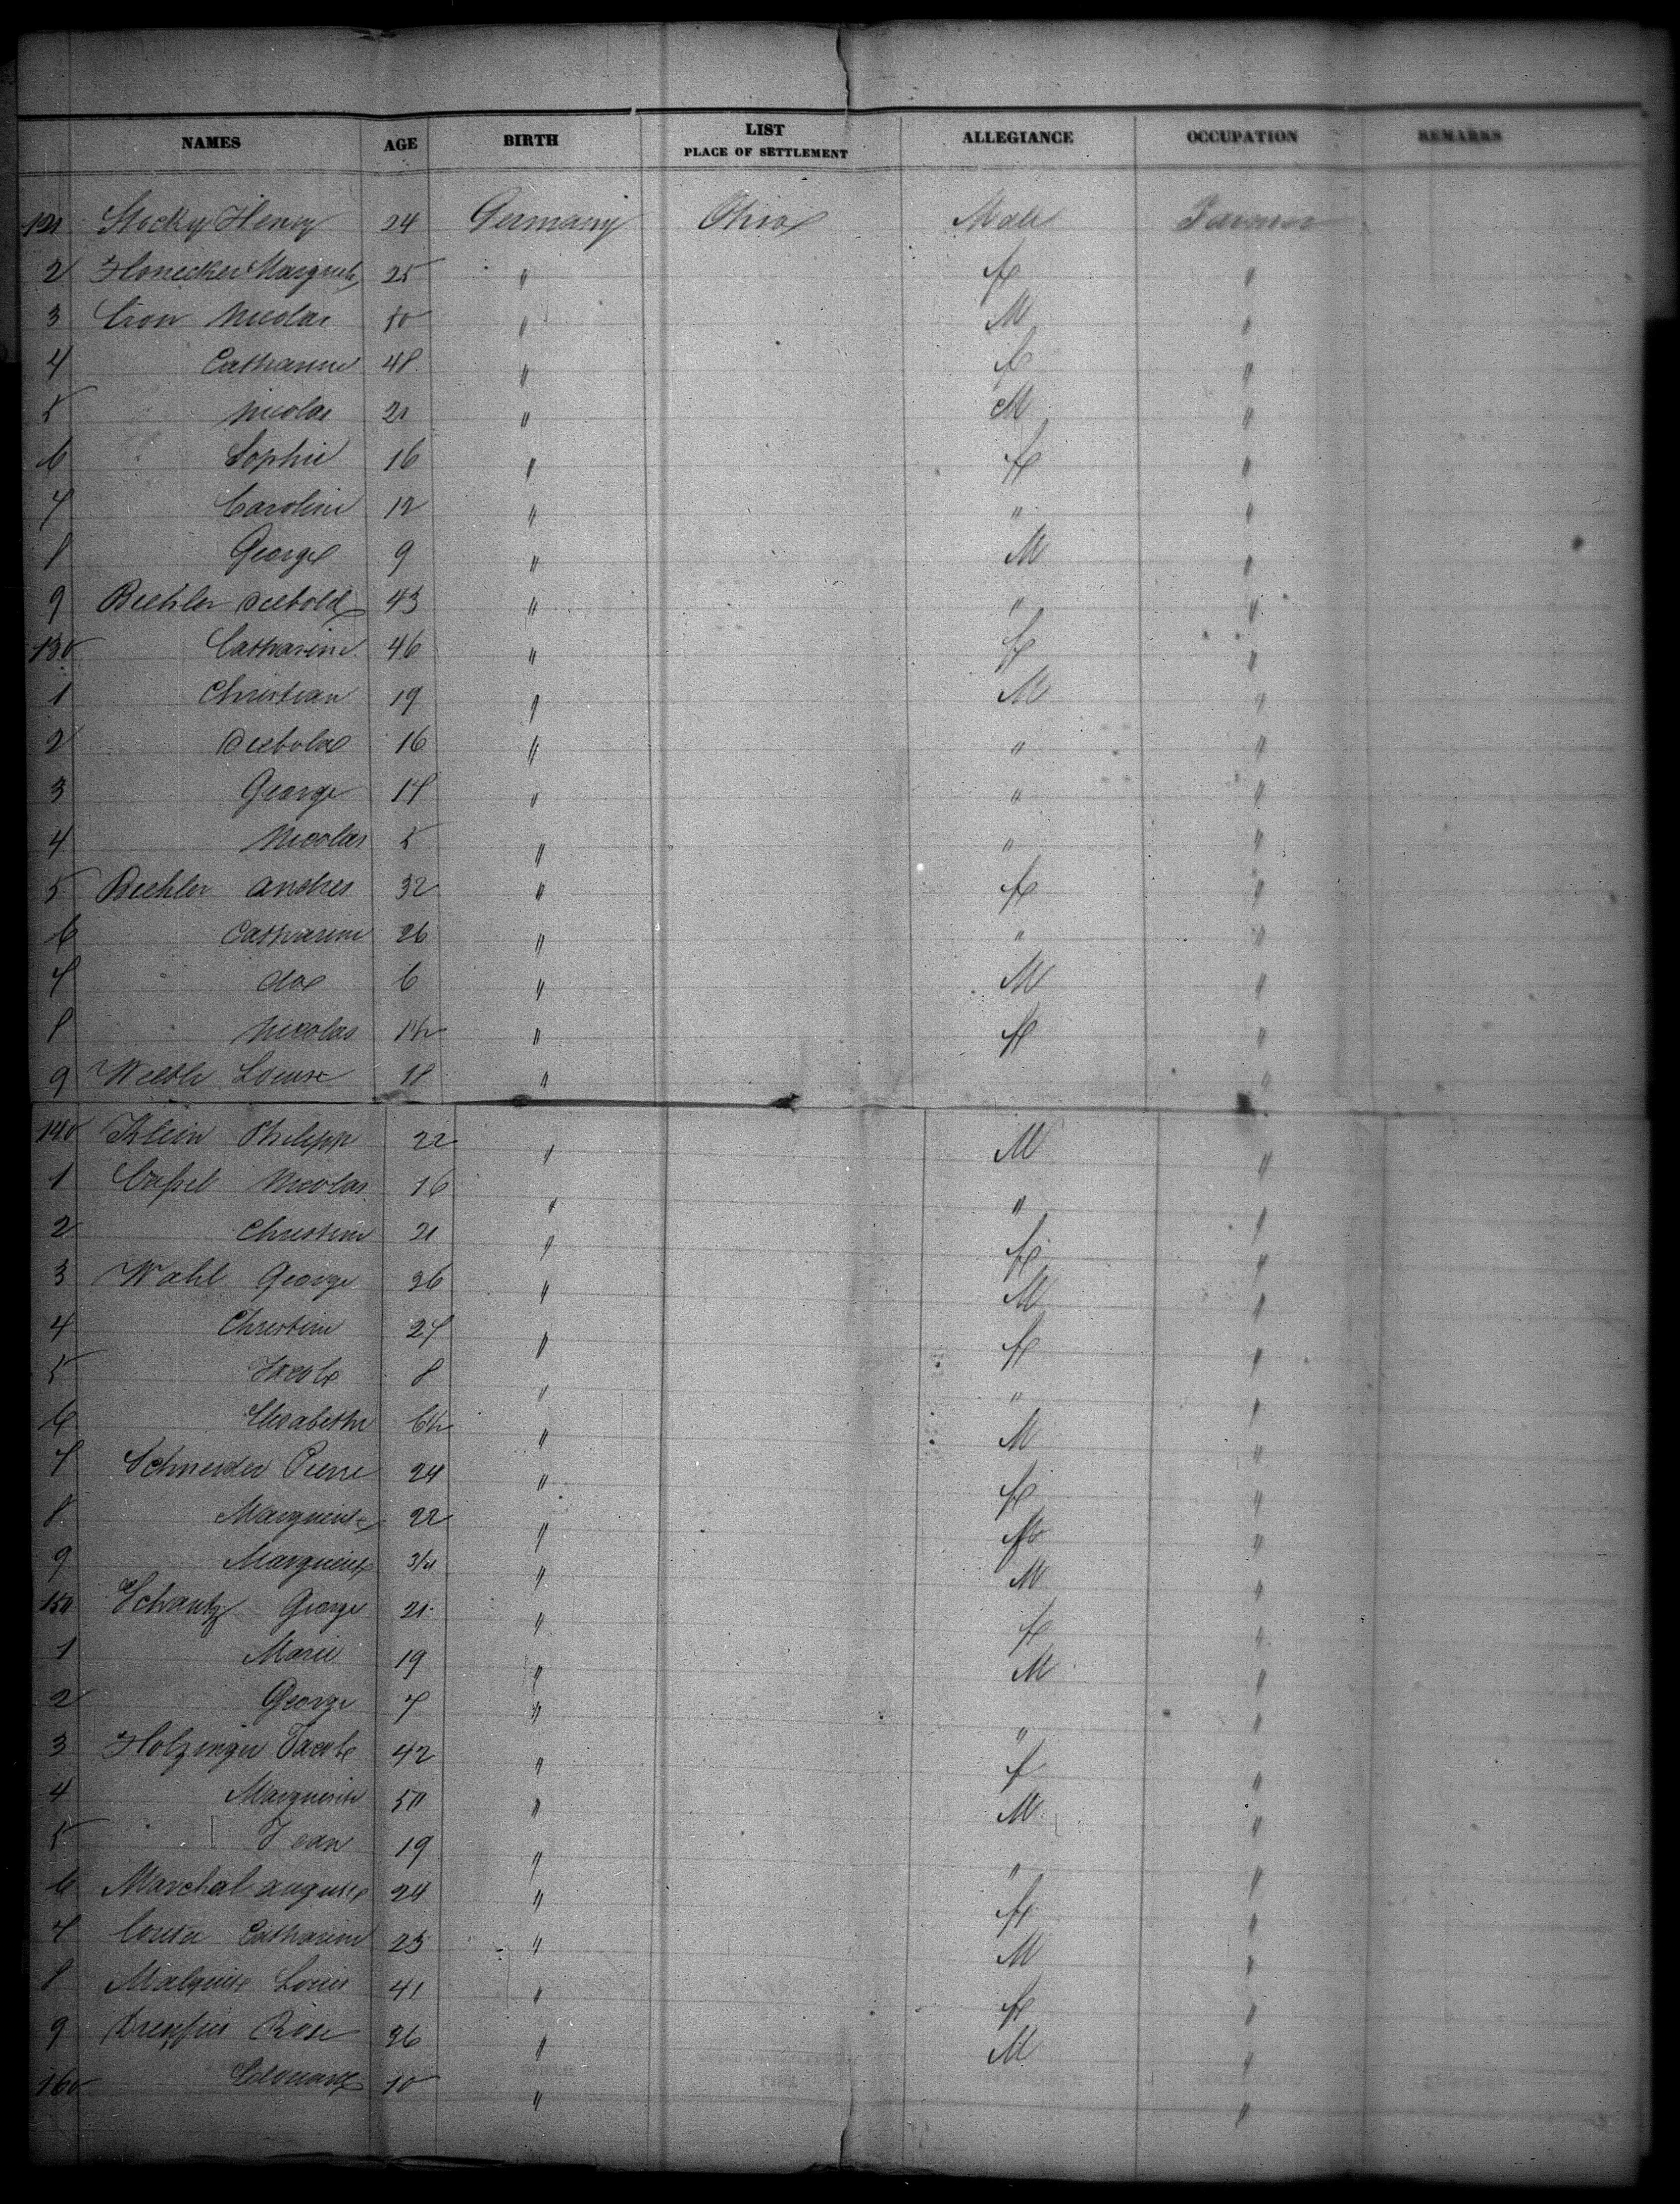 NAMES AGE BIRTH LIST PLACE OF SETTLEMENT ALLEGIANCE OCCUPATION REMARKS
121 Stocky Henry 24 Germany Ohio Male Farmer
2 Honecker 25 " f "
3 Nicolas 50 " M "
4 Catharine 48 " f "
5 Nicolas 21 " M "
6 Sophie 16 " f "
7 Caroline 12 " " "
8 George 9 " M "
9 Biehler Diebold 43 " " "
130 Catharine 46 " f "
1 Christian 19 " M "
2 Diebold 16 " " "
3 George 14 " " "
4 Nicolas 5 " " "
5 Biehler Andres 32 " f "
6 Catharine 26 " " "
7 do 6 " M "
8 Nicolas " f "
9 Louise 18 " "
140 Klein Philipp 22 " M "
1 Cassel Nicolas 16 " " "
2 Christine 21 " f "
3 Wahl George 26 " M "
4 Christine 27 " f "
5 Jacob 8 " " "
6 Elisabeth " M "
7 Schneider Pierre 24 " f "
8 Marguerite 22 " "
9 Marguerite " M "
150 Schantz George 21 " f "
1 Marie 19 " M "
2 George 7 " " "
3 Holzinger Jacob 42 " f "
4 Marguerite 50 " M "
5 Jean 19 " " "
6 Marchal Auguste 24 " f "
7 Catharine 23 " M "
8 Louis 41 " f "
9 Dreyfus Rose 36 " M "
160 Edouard 10 " "